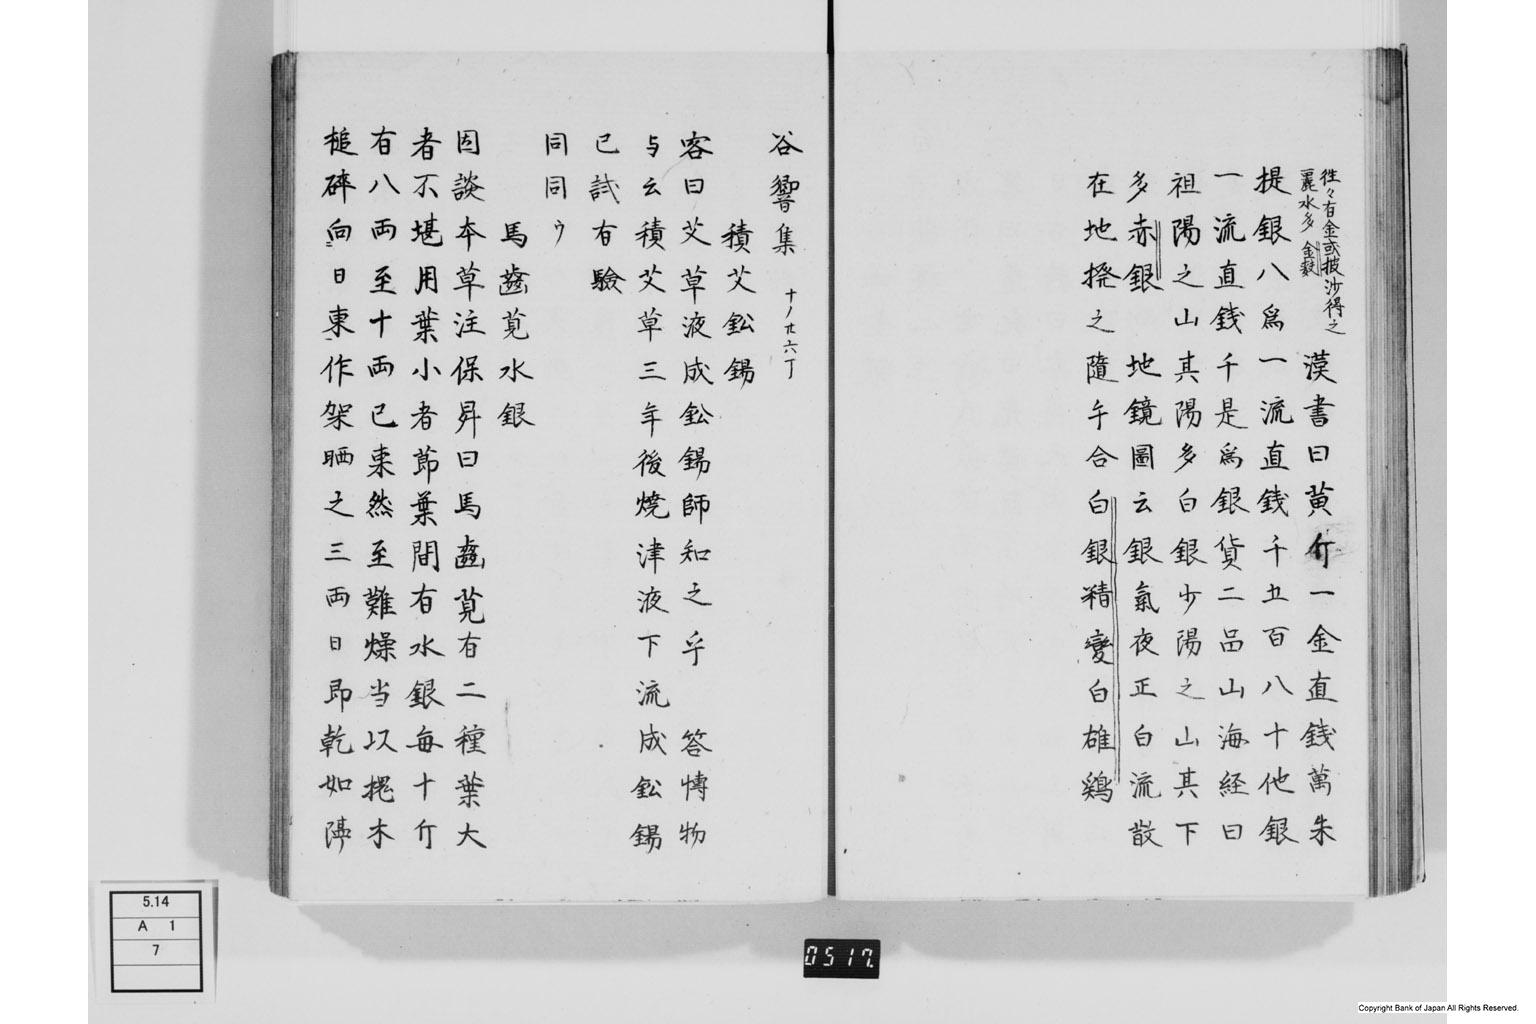 往々有金或披沙得之
麗水多金麩
漢書曰黄斤一金直銭萬朱
提銀八爲一流直銭千五百八十他銀
一流直銭千是爲銀貨二品山海経曰
祖陽之山其陽多白銀少陽之山其下
多赤銀 地鏡圖云銀氣夜正白流散
在地撥之隨手合白銀精變白雄鶏
谷響集 十ノ廿六丁
積艾鈆錫
客曰艾草液成鈆錫師知之乎 答博物
与云積艾草三年後焼津液下流成鈆錫
已試有驗
同同ウ
馬齒莧水銀
因談本草注保昇曰馬齒莧有二種葉大
者不堪用葉小者節葉間有水銀毎十斤
有八両至十両已来然至難燥当以槐木
槌碎向日東作架晒之三両日即乾如隔
5.14
A 1
7
0517.
Copyright Bank of Japan All Rights Reserved.